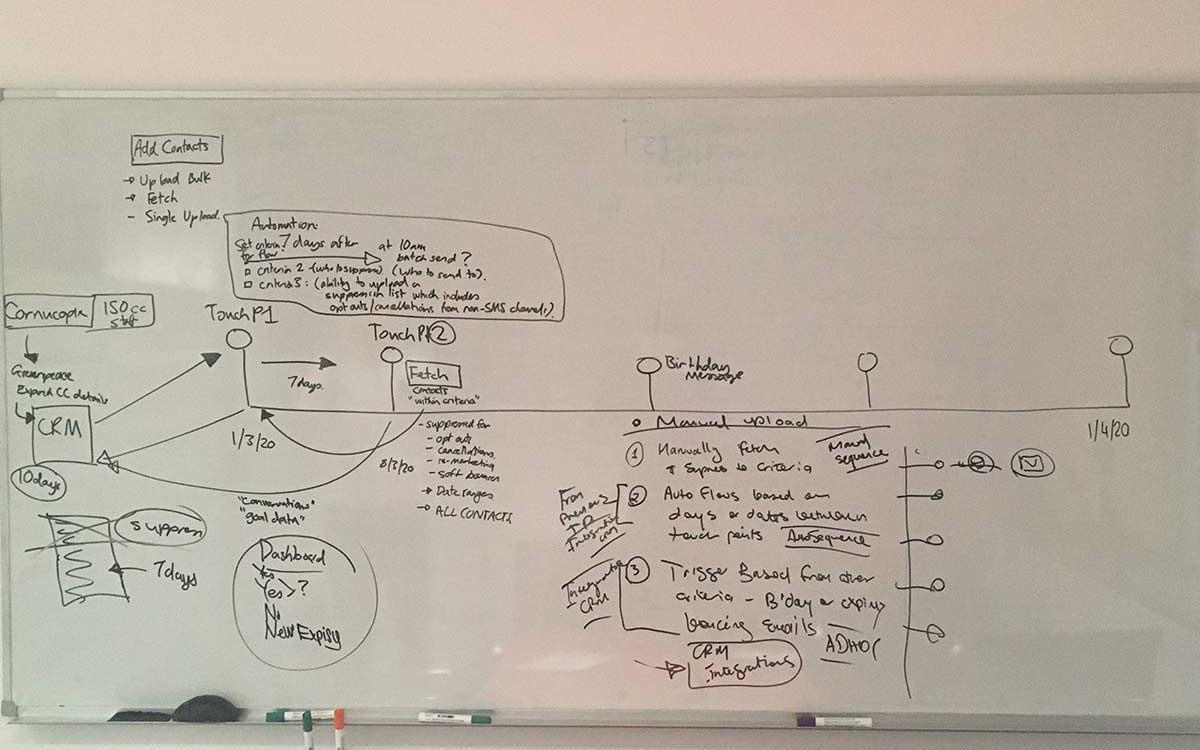 Add Contacts
→ Upload Bulk
→ Fetch
- Single Upload.
Automation:
Set criteria 7 days after at 10am
for flow. batch send?
criteria 2 - (who to suppress) (who to send to).
criteria 3: (ability to upload a
suppression list which includes
opt outs/cancellations from non-SMS channels).
Cornucopia 150 CC
Staff
Greenpeace
Expired CC details
CRM
10 days
suppress
7 days
TouchP1
7 days.
1/3/20
TouchPt 2
Fetch
contacts
"within criteria"
8/3/20
- suppressed for
- opt outs
- cancellations
- re-marketing
- soft bounces
→ Date ranges
→ ALL CONTACTS
"Conversations"
"goal data"
Dashboard
Yes
Yes > ?
No
New Expiry
Birthday
Message
1/4/20
Manual upload
1 Manually Fetch
+ Supress to criteria
Manual
sequence
2 Auto Flows based on
days or dates between
touch points AutoSequence
From
Previous
Integration
CRM
3 Trigger Based from other
criteria - B'day or expiry
bouncing emails
ADHOC
CRM
CRM
integrations